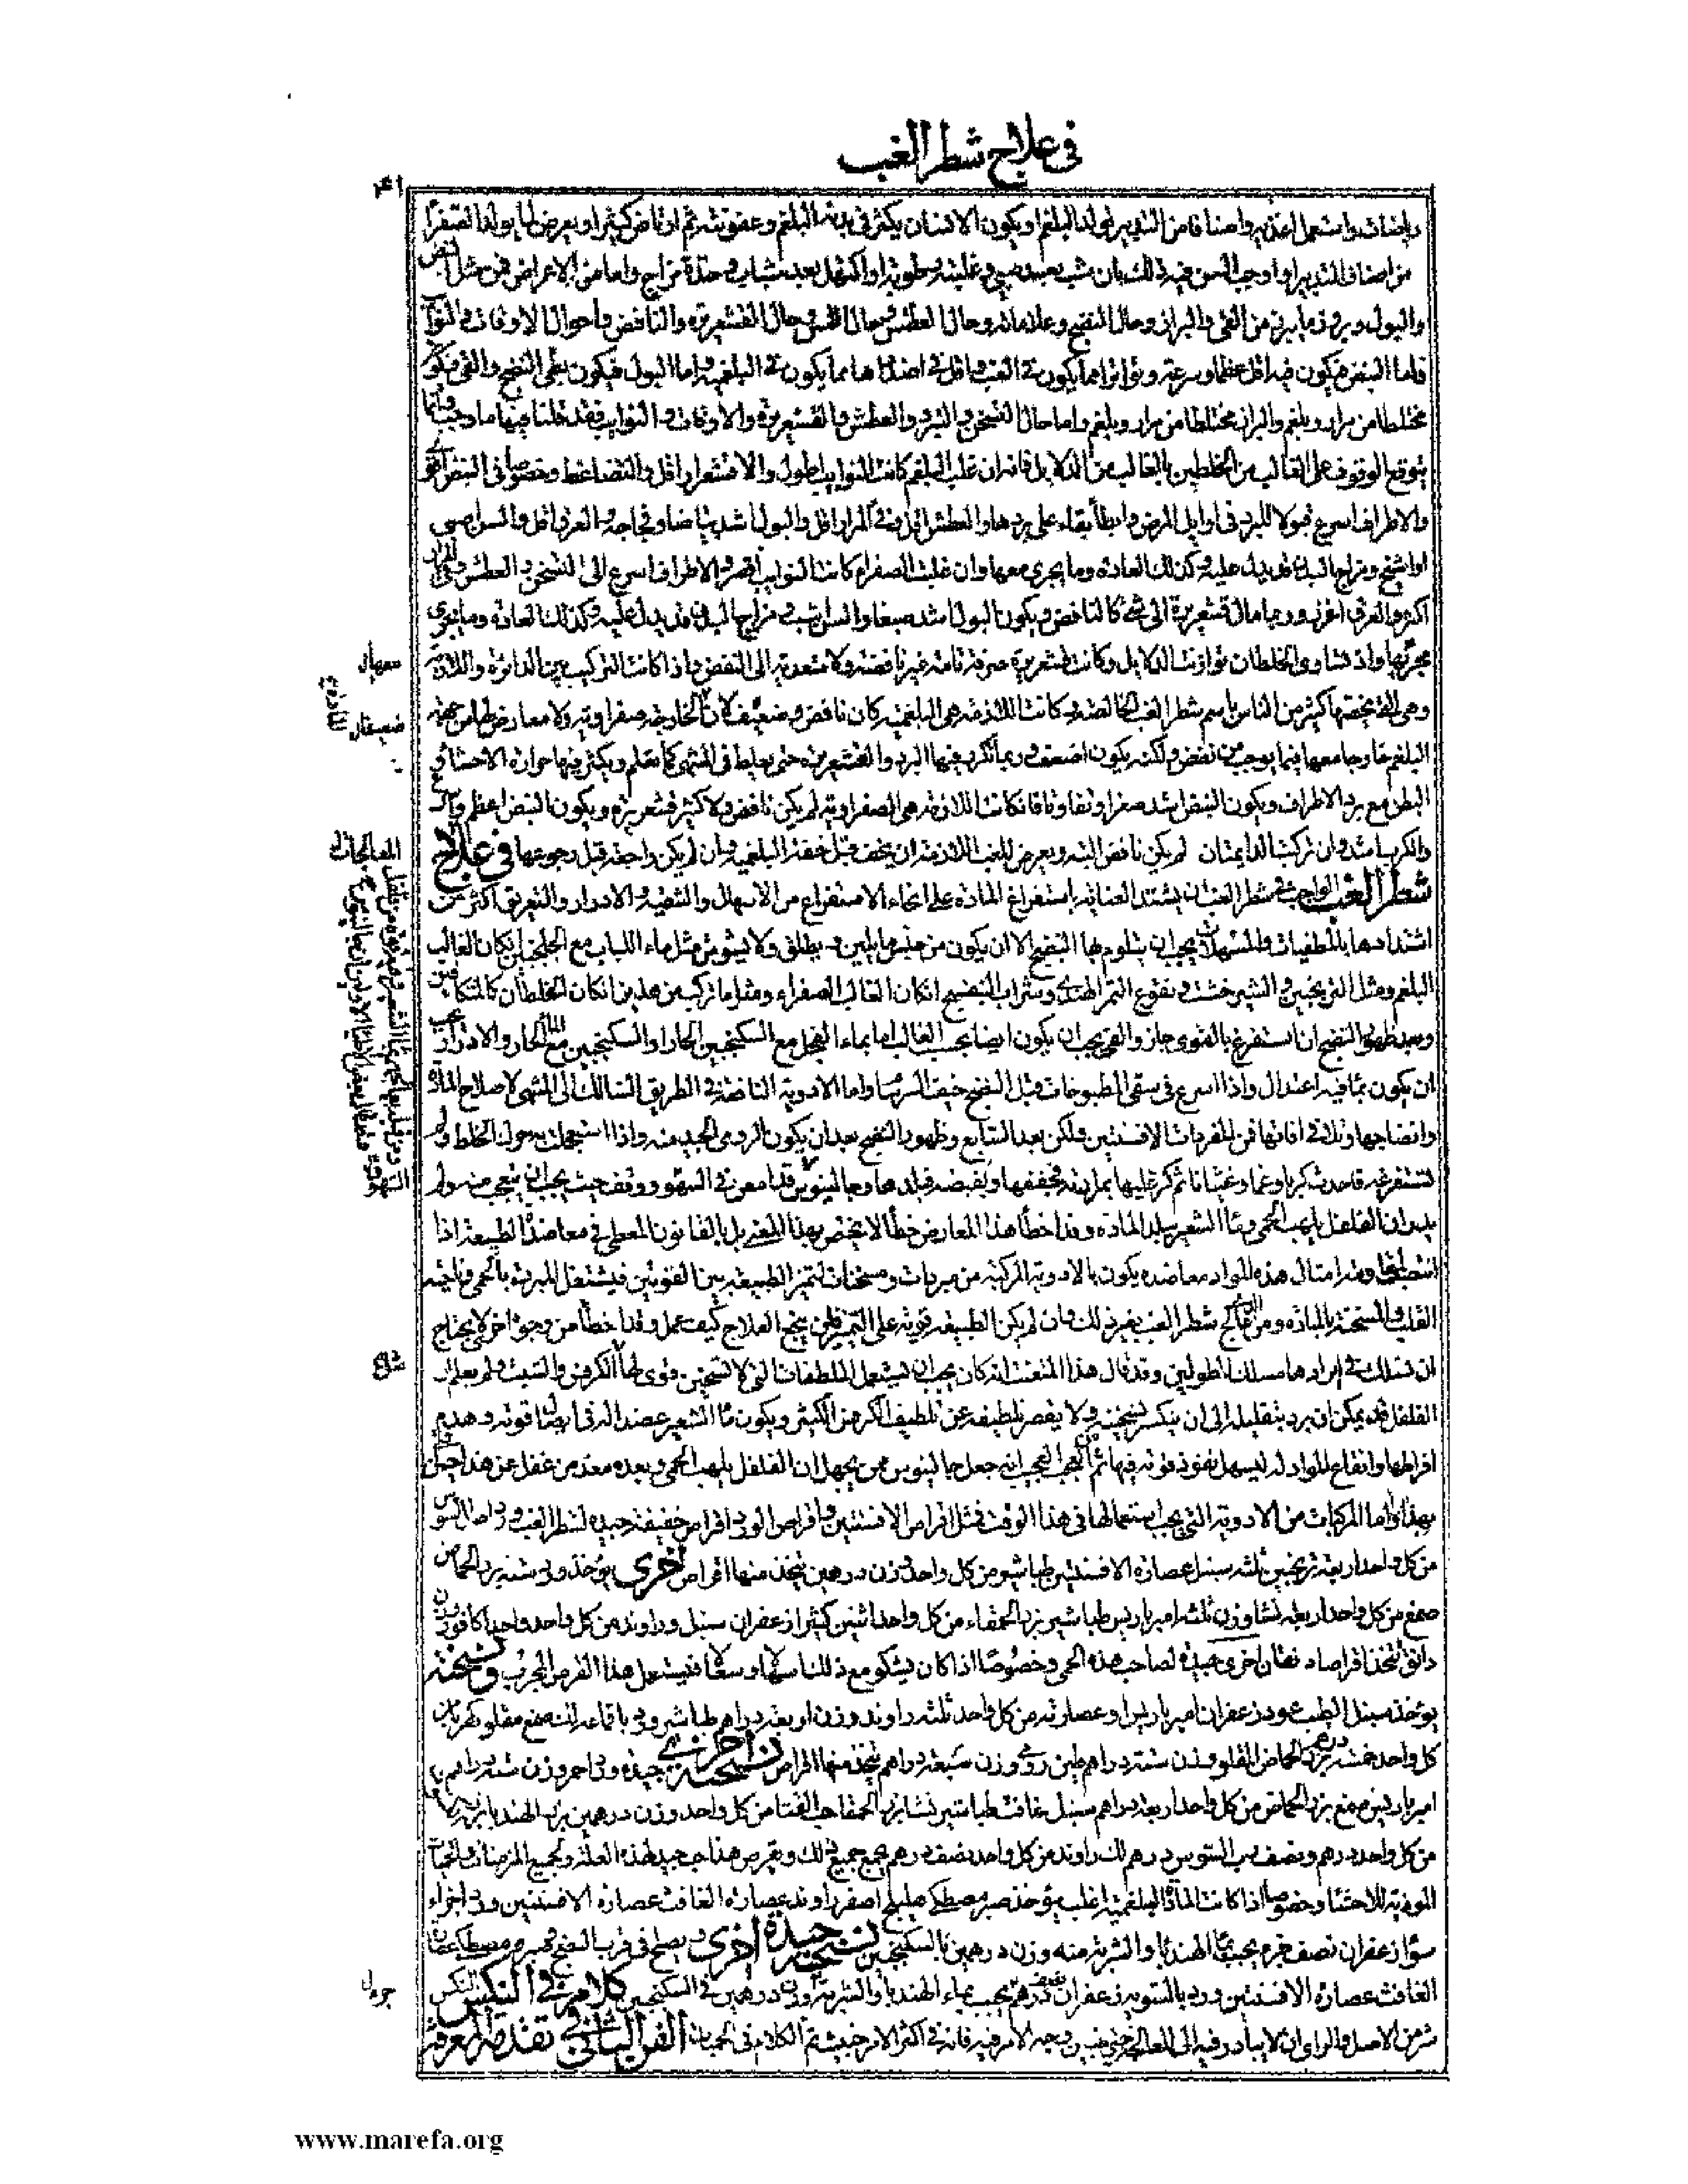 فى علاج شطر الغب
٤١
رياضات واستعمل اغذية واصنافا من التدبير تولد البلغم او يكون الانسان يكثر فى بدنه البلغم وعفونته ثم ارتاض كثيرا او يعرض لها تولد الصفرا
من اصناف التدبير او اوجب السن فيه ذلك بان شب بعد صبى وغلبة رطوبة او اكتهل بعد شباب وحدة مزاج واما من الاعراض فمن مثل النبض
والبول وبروز ما يبرز من القئ والبراز وحال النضج وعلاماته وحال العطش وحال اللمس وحال القشعريرة والنافض واحوال الاوقات والنوائب
فاما النبض فيكون فيه اقل عظما وسرعة وتواترا مما يكون فى الغب واقل فى اضدادها مما يكون فى البلغمية واما البول فيكون بطئ النضج والقئ يكون
مختلطا من مرار وبلغم والبراز مختلطا من مرار وبلغم واما حال التسخن والتبرد والعطش والقشعريرة والاوقات والنوائب فقد قلنا فيها ما وجب وانما
يتوقع الوقوف على الغالب من الخلطين بالغالب من الدلايل فانه ان غلب البلغم كانت النوايب اطول والاقشعرار اقل والتضاغط وخصوصا فى النبض اقوى
والاطراف اسرع قبولا للبرد فى اوايل المرض وابطأ بقاء على بردها والعطش اقل وقئ المرار اقل والبول اشد بياضا وفجاجة والعرق اقل والسن اصبى
او اشيخ ومزاج البدن قد يدل عليه وكذلك العادة وما يجرى معها وان غلبت الصفراء كانت النوايب اقصر والاطراف اسرع الى التسخن والعطش وقئ المرار
اكثر والعرق اغزر وربما مال قشعريرة الى شئ كالنافض ويكون البول اشد صبغا والسن اشب ومزاج البدن قد يدل عليه وكذلك العادة وما يجرى
مجريها واذا تساوى الخلطان توازنت الدلايل وكانت قشعريرة صرفة تامة غير ناقصة ولا متعدية الى النفض واذا كانت التركيب بين الدائرة واللازمة
وهى التى يخصها كثير من الناس باسم شطر الغب الخالصة وكانت اللازمة هى البلغمية كان نافض وضعيف لان الخارجة صفراوية ولا معارض لها من جهة
البلغم خارجا معها فيما يوجب من نفض ولكنه يكون اضعف وربما تكرر فيها البرد والقشعريرة حتى يغلط فى المنتهى كما تعلم ويكثر فيها حرارة الاحشاء و
البطن مع برد الاطراف ويكون النبض اشد صغرا وتفاوتا فان كانت اللازمة هى الصفراوية لم يكن نافض ولا كثير قشعريرة ويكون النبض اعظم واسرع
والكرب اشد وان تركبت الدايمتان لم يكن نافض البتة ويعرض للغب اللازمة ان يخف قبل خفة البلغمية وان لم يكن واجعة قبل رجوعها فى علاج
شطر الغب الواجب فى شطر الغب ان يشتد العناية باستفراغ المادة على انحاء الاستفراغ من الاسهال والتقية والادرار والتعريق اكثر من
اشتدادها بالمطفيات والمسهلات يجب ان يتلوم بها النضج الا ان يكون من جنس ما يلين ويطلق ولا يشوش مثل ماء اللباب مع الجلنجبين ان كان الغالب
البلغم ومثل الترنجبين والشيرخشت ونقوع التمر الهندى وشراب البنفسج ان كان الغالب الصفراء ومثل ما تركب من هذين ان كان الخلطان كالمتكافيين
وبعد ظهور النضج ان استفرغ بالقوى جاز والقئ يجب ان يكون ايضا بحسب الغالب اما بماء الفجل مع السكنجبين الحار او السكنجبين مع الماء الحار والادرار يجب
ان يكون بما فيه اعتدال واذا اسرع فى سقى المطبوخات قبل النضج خيف السرسام واما الادوية الناضحة فى الطريق السالك الى المنتهى لاصلاح المادة
وانضاجها وتلافى افاتها فمن المفردات الافسنتين ولكن بعد السابع وظهور النضج بعد ان يكون الرومى الجيد منه واذا استعجلت به حرك الخلط ولم
تستفرغه فاحدث كربا وغما وغثيانا ثم كر عليها بمرارته فجففها وبقبضه فبلدها وجالينوس قد امعن فى السهو ووقف حيث يجب ان يتعجب منه ولم
يدر ان الفلفل يلهب الحمى وماء الشعير يبلد المادة وقد اخطأ هذا المعارض خطأ لا يختص بهذا المعنى بل بالقانون المعطى فى معاضدة الطبيعة اذا
انتصبت لمقاومة امثال هذه المواد معاضدة يكون بالادوية المركبة من مبردات ومسخنات لتميز الطبيعة بين القوتين فيشتغل المبردة بالحمى وناحية
القلب والمسخنة بالمادة ومن الذى عالج شطر الغب بغير ذلك وان لم يكن الطبيعة قوية على التمييز فلن ينجح العلاج كيف عمل وقد اخطأ من وجوه اخرى لا يحتاج
ان نسلك فى ايرادها مسلك المطولين وقد قال هذا المتعنت انه كان يجب ان يستعمل الملطفات التى لا تسخين قوى لها كالكرفس والشبث ولم يعلم ان
الفلفل قد يمكن ان يرد بتقليله الى ان ينكسر تسخينه ولا يقصر تلطيفه عن تلطيف الكرفس الكثير ويكون ماء الشعير عضدا له فى ابطاء قوته وهدم
افراطها وانقاع للمواد له ليسهل نفوذ قوته فيها ثم العجب العجيب انه جعل جالينوس ممن يجهل ان الفلفل يلهب الحمى ويعده معد من غفل عن هذا
بهذا واما المركبات من الادوية التى يجب استعمالها فى هذا الوقت فمثل اقراص الافسنتين واقراص الورد اقراص خفيفة جيدة لشطر الغب ورد اصل السوس
من كل واحد اربعة ترنجبين ثلثة سنبل عصارة الافسنتين طباشير من كل واحد وزن درهمين يتخذ منها اقراص اخرى يؤخذ ورد ستة بزر الحماض
صمغ من كل واحد اربعة نشا وزن ثلثة اميرباريس طباشير بزر الحمقاء من كل واحد اثنين كثيرا زعفران سنبل وراوند من كل واحد واحد كافور وزن
دانق تتخذ اقراصا دفعات اخرى جيدة لصاحب هذه الحمى وخصوصا اذا كان يشكو مع ذلك اسهالا وسعالا فيستعمل هذا القرص المجرب ونسخته
يؤخذ سنبل الطيب ورد زعفران اميرباريس او عصارته من كل واحد ثلثة راوند وزن اربعة دراهم طباشير ورد باقماعه لك صمغ مقلو كهربا من
كل واحد خمسة دراهم بزر الحماض المقلو وزن ستة دراهم طين رومى وزن سبعة دراهم يتخذ منها اقراص نسخة اخرى جيدة ورد احمر وزن ستة دراهم
اميرباريس صمغ بزر الحماض من كل واحد اربعة دراهم سنبل غافت طباشير نشا بزر الحمقا حب القثا من كل واحد وزن درهمين بزر الهندبا
من كل واحد درهم ونصف رب السوس درهم لك راوند من كل واحد نصف درهم يجمع جميع ذلك ويقرص هذا حب جيد لهذه العلة ولجميع المزمنات والحميات
الموذية للاحشا وخصوصا اذا كانت المادة البلغمية اغلب يؤخذ صبر مصطكى هليلج اصفر راوند عصارة الغافت عصارة الافسنتين ورد اجزاء
سوا زعفران نصف جزء يحبب بماء الهندبا والشربة منه وزن درهمين بالسكنجبين نسخة جيدة اخرى ويصلح فى قرب النضج صبر مصطكى عصارة
الغافت عصارة الافسنتين ورد بالسوية زعفران نصف درهم يحبب بماء الهندبا والشربة وزن درهمين فى السكنجبين كلام فى النكس النكس
شر من الاصل والراى ان لا يبادر فيه الى المعالجة حتى يتبين وجه الامر فيه فانه فى اكثر الامر خبيث تم الكلام فى الحميات الفن الثانى فى تقدمة المعرفة
www.marefa.org